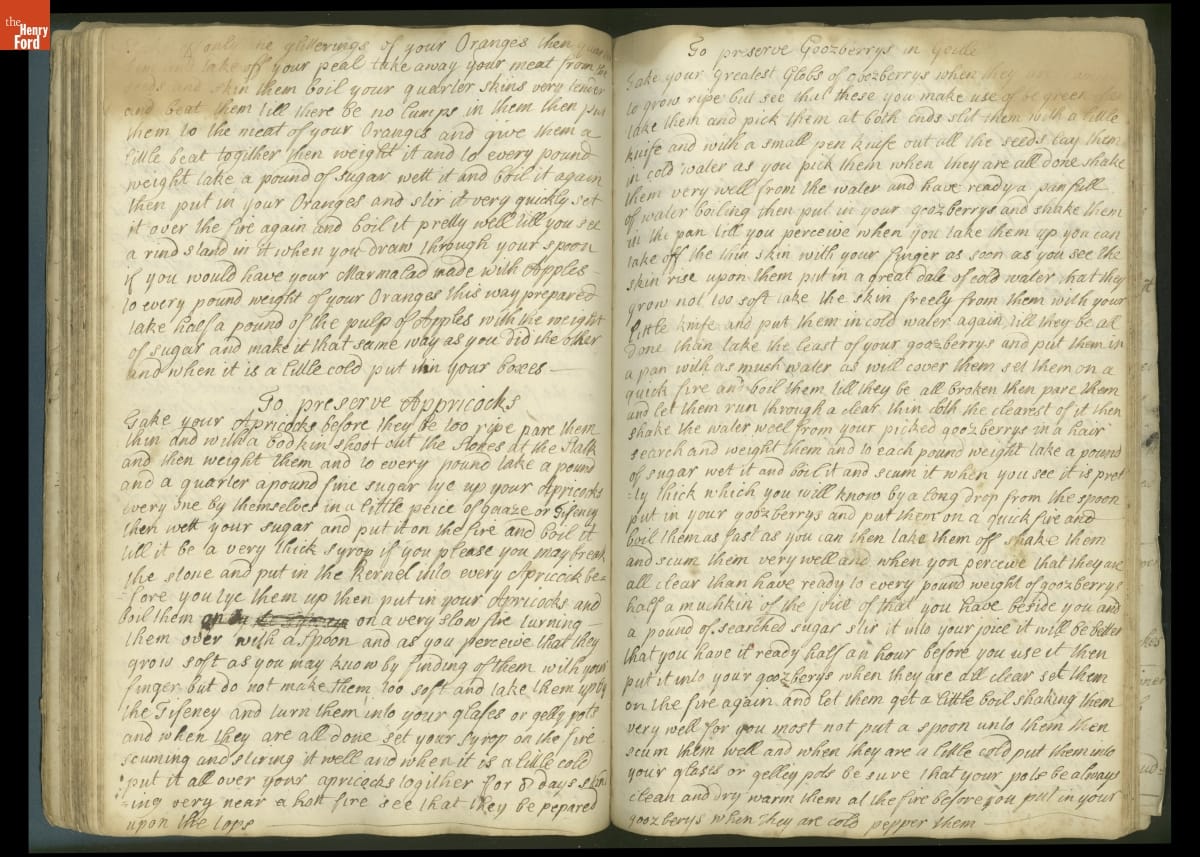 the
Henry
Ford
only the glitterings of your Oranges then
take off your peal take away your meat from
seeds and skin them boil your quarter skins very tender
and beat them till there be no lumps in them then put
them to the meat of your Oranges and give them a
little beat togither then weight it and to every pound
weight take a pound of sugar wett it and boil it again
then put in your Oranges and stir it very quickly set
it over the fire again and boil it pretty well till you see
a rind stand in it when you draw through your spoon
if you would have your Marmalad made with Apples
to every pound weight of your Oranges this way prepared
take half a pound of the pulp of Apples with the weight
of sugar and make it that same way as you did the other
and when it is a little cold put it in your boxes
To preserve Appricocks
Take your Apricocks before they be too ripe pare them
thin and with a bodkin shoot out the stones at the stalk
and then weight them and to every pound take a pound
and a quarter a pound fine sugar tye up your Apricocks
every one by themselves in a little peice of gaaze or Tifeney
then wett your sugar and put it on the fire and boil it
till it be a very thick syrop if you please you may break
the stone and put in the kernel into every Apricock be=
fore you tye them up then put in your Apricocks and
boil them on a very slow fire turning
them over with a spoon and as you perceive that they
grow soft as you may know by finding of them with your
finger but do not make them too soft and take them up by
the Tifeney and turn them into your glases or gelly pots
and when they are all done set your syrop on the fire
scuming and stiring it well and when it is a little cold
put it all over your apricocks togither for 8 days
=ing very near a hott fire see that they be pepared
upon the tops
To preserve Goozberrys in
Take your greatest Globs of goozberrys when they are
to grow ripe but see that these you make use of be green
take them and pick them at both ends slit them with a little
knife and with a small pen knife out all the seeds lay them
in cold water as you pick them when they are all done shake
them very well from the water and have ready a pan full
of water boiling then put in your goozberrys and shake them
in the pan till you perceive when you take them up you can
take off the thin skin with your finger as soon as you see the
skin rise upon them put in a great dale of cold water that they
grow not too soft take the skin freely from them with your
little knife and put them in cold water again till they be all
done than take the least of your goozberrys and put them in
a pan with as much water as will cover them set them on a
quick fire and boil them till they be all broken then pare them
and let them run through a clear thin cloth the clearest of it then
shake the water weel from your picked goozberrys in a hair
search and weight them and to each pound weight take a pound
of sugar wet it and boil it and scum it when you see it is pret
=ty thick which you will know by a long drop from the spoon
put in your goozberrys and put them on a quick fire and
boil them as fast as you can then take them off shake them
and scum them very well and when you perceive that they are
all clear than have ready to every pound weight of goozberrys
half a muchkin of the joice of that you have beside you and
a pound of searched sugar stir it into your joice it will be better
that you have it ready half an hour before you use it then
put it into your goozberys when they are all clear set them
on the fire again and let them get a little boil shaking them
very well for you most not put a spoon unto them then
scum them well and when they are a little cold put them into
your glases or gelley pots be sure that your pots be always
clean and dry warm them at the fire before you put in your
goozberys when they are cold pepper them